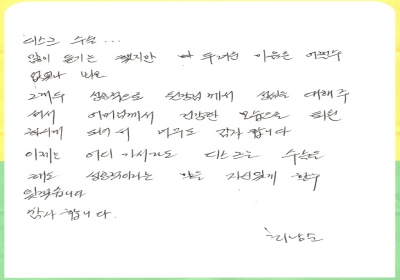 디스크 수술...
많이 듣기는 했지만 두려운 마음은 어쩔수
없었나 봐요
그래도 성공적으로 원장님께서 수술을 대해 주
셔서 어머님께서 건강한 모습으로 퇴원
하시게 되어서 너무도 감사합니다
이제는 어디 가서라도 디스크는 수술은
해도 성공적이라는 말을 자신있게 할수
있겠습니다
감사합니다.